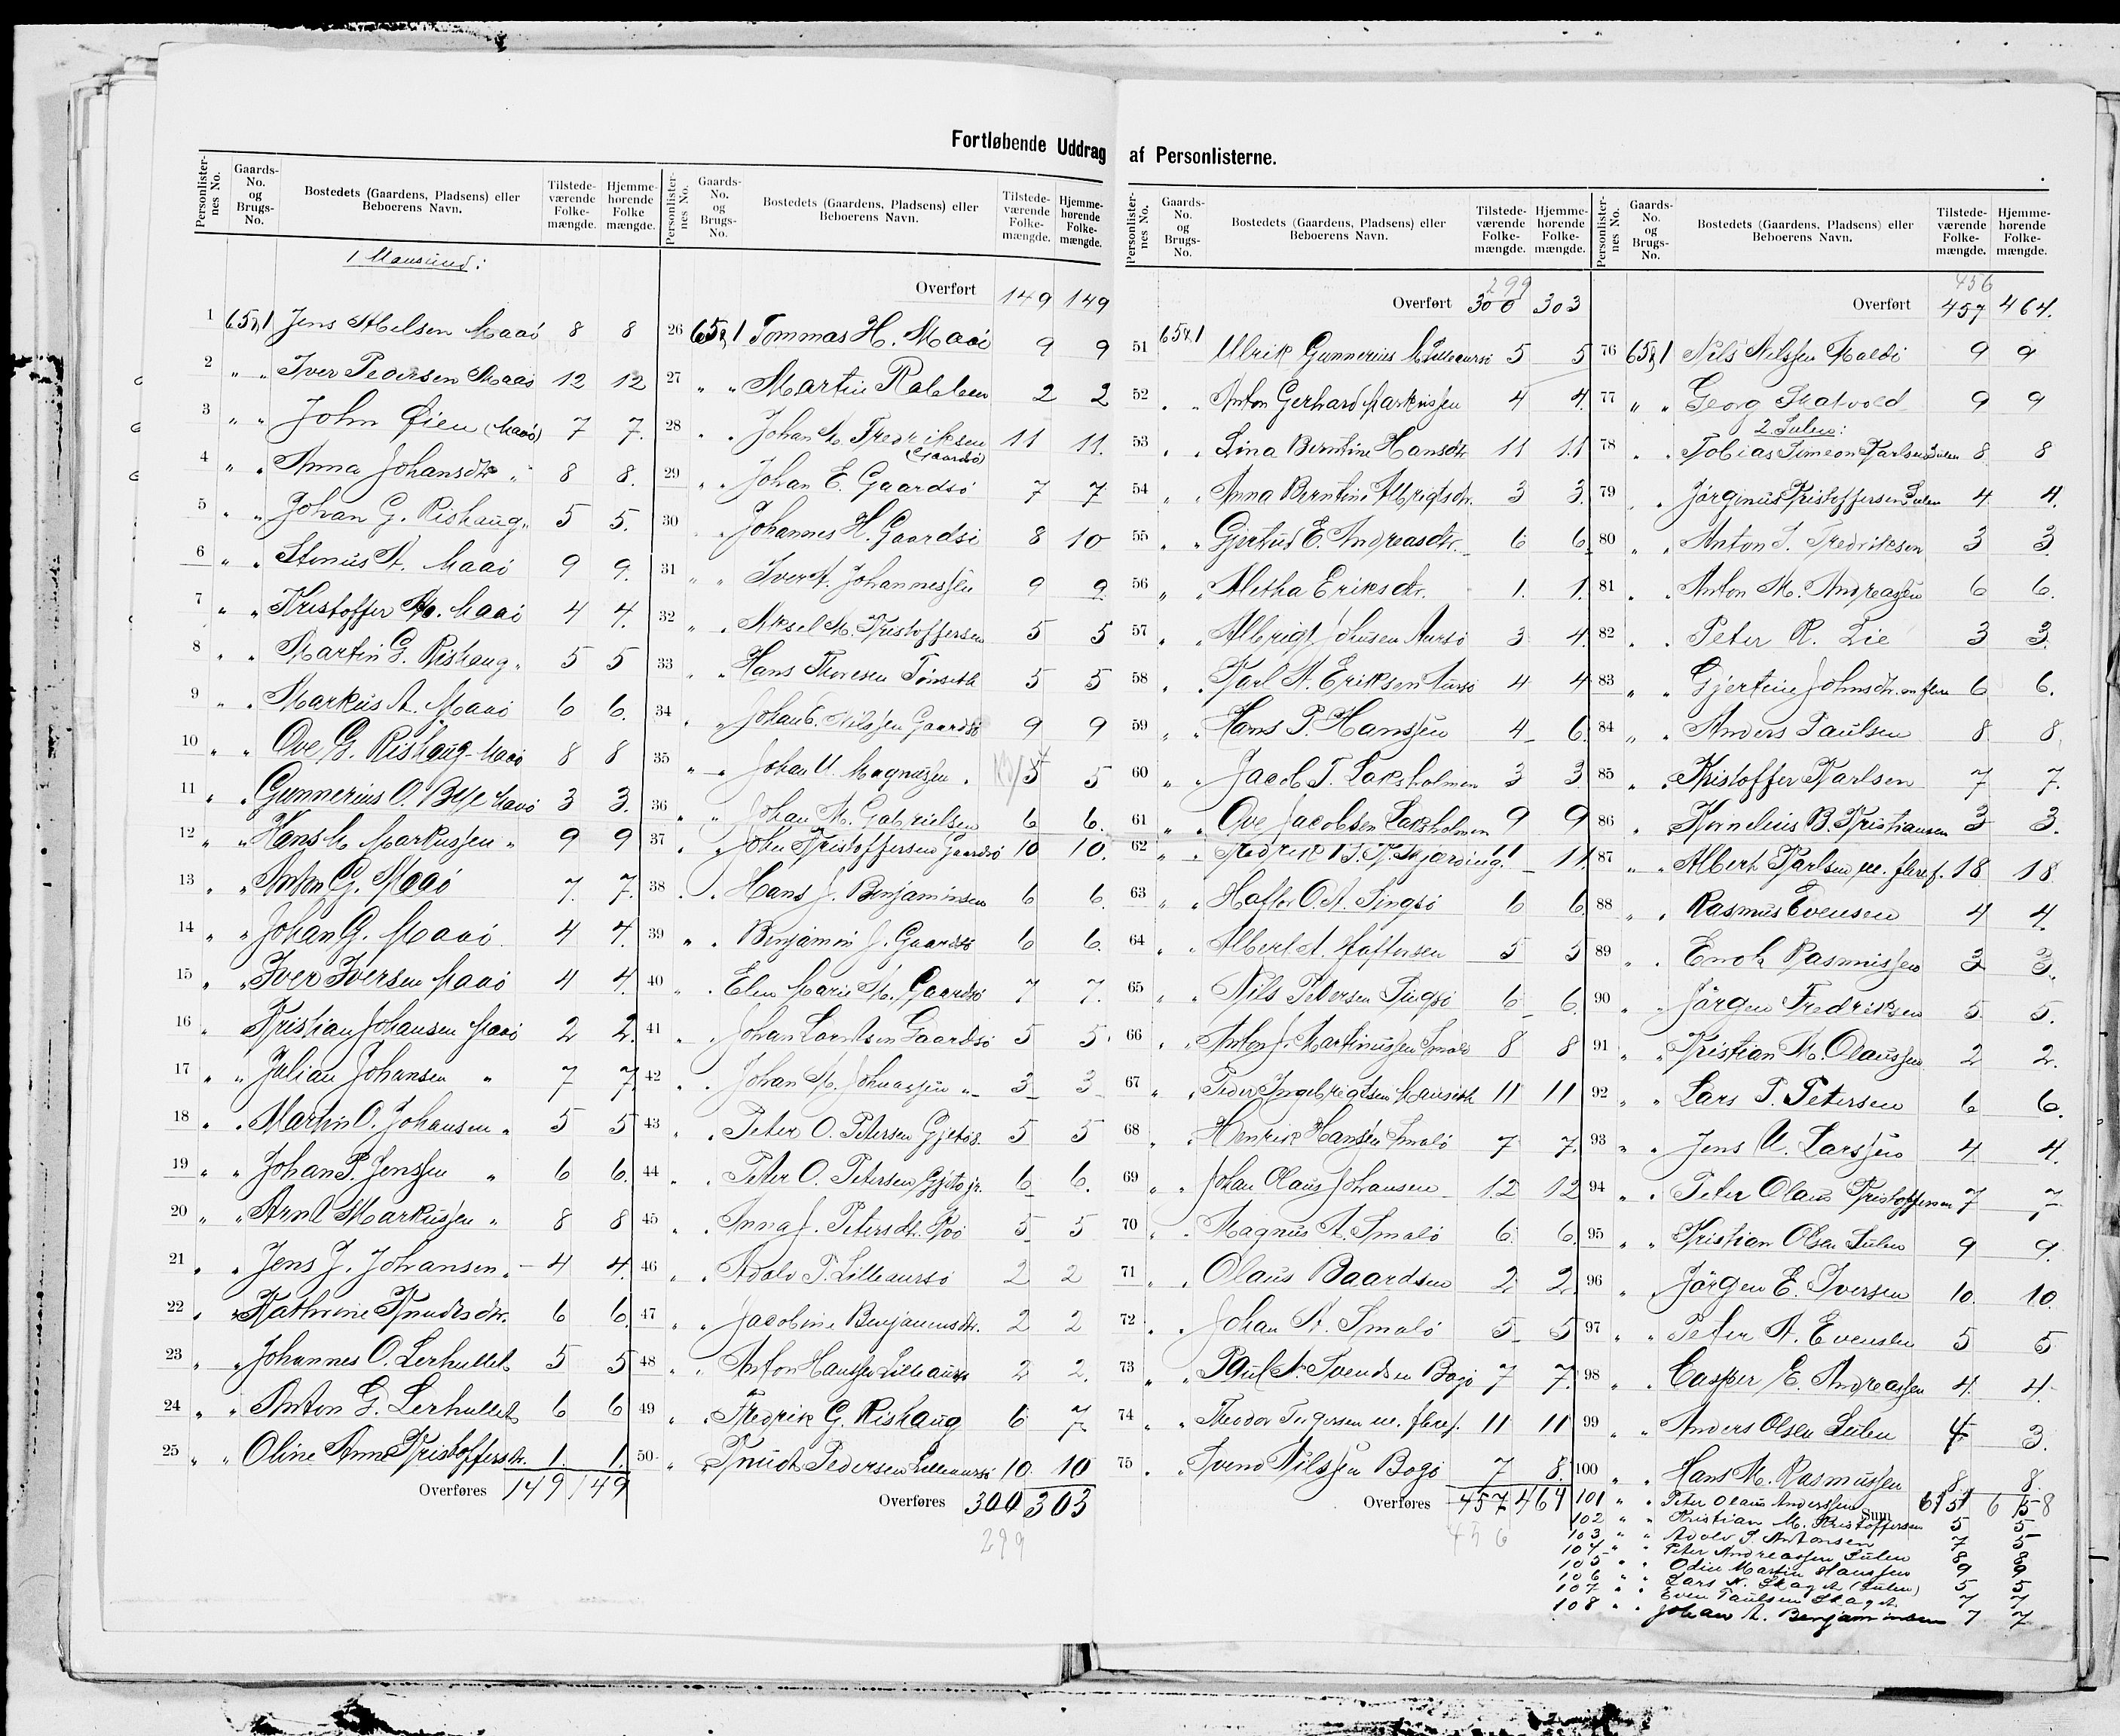 Fortløbende Uddrag af Personlisterne.
Personlister-nes No. Gaards-No. og Brugs-No. Bostedets (Gaardens, Pladsens) eller Beboerens Navn. Tilstede-værende Folke-mængde. Hjemme-hørende Folke mængde.
1 Mausund:
1 65,1 Jens Nelsen Maaö 8 8
2 " " Iver Pedersen Maaö 12 12
3 " " John Øien (Maaö) 7 7.
4 " " Anna Johansdtr " 8 8.
5 " " Johan G. Rishaug " 5 5.
6 " " Stenus A. Maaö 9 9.
7 " " Kristoffer M. Maaö 4 4.
8 " " Martin G. Rishaug " 5 5
9 " " Markus A. Maaö 6 6.
10 " " Ove G. Rishaug Maaö 8 8
11 " " Gunnerius O. Bye Maaö 3 3.
12 " " Hans M. Markussen " 9 9
13 " " Anton G. Maaö 7. 7.
14 " " Johan G. Maaö 4 4.
15 " " Iver Iversen Maaö 4 4.
16 " Kristian Johansen Maaö 2 2.
17 " " Julian Johansen " 7 7
18 " " Martin O. Johansen " 5 5
19 " " Johan P. Jenssen " 6 6.
20 " " Arnt Markussen " 8 8
21 " " Jens J. Johansen " 4 4.
22 " " Kathrine Knudtsdtr. 6 6.
23 " " Johannes O. Lerhullet 5 5
24 " " Anton G. Lerhullet 6 6
25 " " Oline Anna Kristoffersdtr. 1. 1.
Overføres 149 149
Personlister-nes No. Gaards-No. og Brugs-No. Bostedets (Gaardens, Pladsens) eller Beboerens Navn. Tilstede-værende Folke-mængde. Hjemme-hørende Folke-mængde.
Overført 149 149
26 65,1 Tommas H. Maaö 9 9
27 " " Martin Rabben 2 2
28 " " Johan M. Fredriksen (Gaardsö) 11 11.
29 " " Johan E. Gaardsö 7 7
30 " " Johannes H. Gaardsö 8 10
31 " " Iver A. Johannessen 9 9
32 " " Aksel M. Kristoffersen 5 5
33 " " Hans Thoresen Tönseth 5 5
34 " " Johan C. Nilssen Gaardsö 9 9
35 " " Johan U. Magnussen " 5 5
36 " " Johan M. Gabrielsen 6 6.
37 " " John Kristoffersen Gaardsö 10 10.
38 " " Hans J. Benjaminsen 6 6.
39 " " Benjamin J. Gaardsö 6 6.
40 " " Elen Marie M. Gaardsö 7 7.
41 " " Johan Lorntsen Gaardsö 5 5.
42 " " Johan M. Johnassen " 3 3
43 " " Peter O. Petersen Gjetö s. 5 5
44 " " Peter O. Petersen Gjetö jr. 6 6.
45 " " Anna J. Petersdtr. 5 5
46 " " Adolv P. Lilleaursö 2 2
47 " " Jacobine Benjaminsdtr. 2 2
48 " " Anton Hanssen Lilleaursö 2 2.
49 " " Fredrik G. Rishaug 6 7
50 " " Knudt Pedersen Lilleaursö 10. 10
Overføres 300 303
299
Personlister-nes No. Gaards-No. og Brugs-No. Bostedets (Gaardens, Pladsens) eller Beboerens Navn. Tilstede-værende Folke-mængde. Hjemme-hørende Folke-mængde.
299
Overført 300 303
51 65,1 Ulrik Gunnerius M. Lilleaursö 5 5
52 " " Anton Gerhard Markussen 4 4.
53 " " Lina Berntine Hansdtr 11 11
54 " " Anna Berntine Albrigtsdtr. 3 3.
55 " " Gjertrud E. Andreasdtr. 6 6
56 " " Aletha Eriksdtr. 1. 1.
57 " " Albrigt Johnsen Aursö 3 4.
58 " " Karl A. Eriksen Aursö 4 4
59 " " Hans P. Hanssen 4 6.
60 " " Jacob T. Laksholmen 3 3.
61 " " Ove Jacobsen Laksholmen 9 9
62 " " Fredrik 11 11.
63 " " Haftor O. A. Singsö 6 6.
64 " " Albert A. Haftorsen 5 5
65 " " Nils Petersen Singsö 6 6.
66 " " Anton J. Martinussen Smalö 8 8
67 " " Peder Ingebrigtsen Mauseth 11 11
68 " " Henrik Hansen Smalö 7 7.
69 " " Johan Olaus Johansen 12 12
70 " " Magnus A. Smalö 6. 6.
71 " " Olaus Baardsen 2. 2.
72 " " Johan A. Smalö 5 5
73 " " Paul A. Svendsen Bogö 7 7.
74 " " Theodor Torgersen m. flere f. 11 11
75 " " Svend Nilssen Bogö 7 8.
Overføres 457 464
456
Personlister-nes No. Gaards-No. og Brugs-No. Bostedets (Gaardens, Pladsens) eller Beboerens Navn. Tilstede-værende Folke-mængde. Hjemme-hørende Folke-mængde.
456
Overført 457 464.
76 65,1 Nils Nilssen Kalvö 9 9
77 " " Georg Skatvold 9 9
2 Sulen:
78 " " Tobias Simeon Karlsen Sulen 8 8
79 " " Jörginus Kristoffersen Sulen 4 4.
80 " " Anton S. Fredriksen 3 3.
81 " " Anton M. Andreassen 6 6.
82 " " Peter R. Lie 3 3.
83 " " Gjertine Johnsdtr. m. flere 6 6.
84 " " Anders Paulsen 8 8.
85 " " Kristoffer Karlsen 7 7.
86 " Kornelius B. Kristiansen 3 3.
87 " " Albert Karlsen m. flere f. 18 18
88 " " Rasmus Evensen 4 4.
89 " " Enok Rasmussen 3 3.
90 " " Jörgen Fredriksen 5 5.
91 " " Kristian M. Olaussen 2 2.
92 " " Lars P. Petersen 6 6.
93 " " Jens U. Larssen 4 4.
94 " " Peter Olaus Kristoffersen 7 7
95 " " Kristian Olsen Sulen 9 9.
96 " " Jörgen E. Iversen 10. 10
97 " " Peter A. Evensen 5 5
98 " " Casper E. Andreassen 4. 4.
99 " " Anders Olsen Sulen 4 3.
100 " " Hans M. Rasmussen 8. 8.
101 " " Peter Olaus Anderssen Sum
102 " " Kristian M. Kristoffersen 5 5
103 " " Adolv S. Antonsen 7 5
104 " " Peter Andreassen Sulen 8 8
105 " " Odin Martin Hanssen 9 9
106 " " Lars N. Skaget (Sulen) 5 5
107 " " Even Paulsen Skaget 7 7
108 " " Johan A. Benjaminsen 7 7